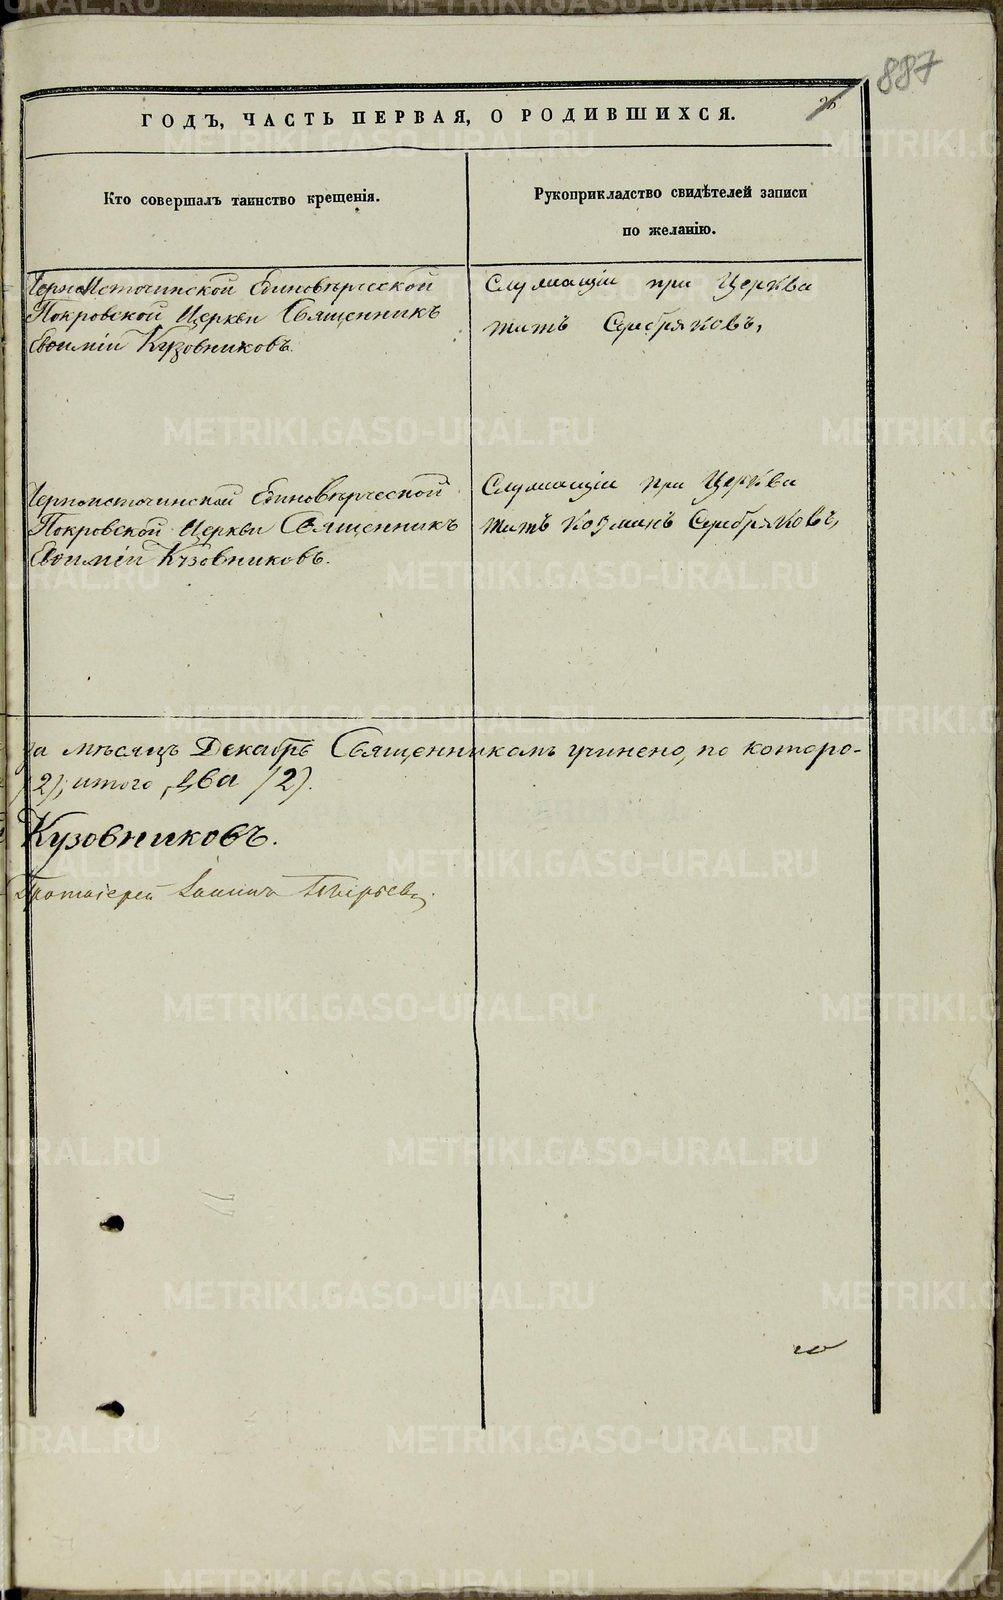 887
26
ГОДЪ, ЧАСТЬ ПЕРВАЯ, О РОДИВШИХСЯ.
Кто совершалъ таинство крещенія.
Рукоприкладство свидѣтелей записи
по желанію.
Черноисточинской Единовѣрческой
Покровской Церкви Священникъ
Евѳимій Кузовниковъ.
Служащій при Церкви
Титъ Серебряковъ,
Черноисточинской Единовѣрческой
Покровской Церкви Священникъ
Евѳимій Кузовниковъ.
Служащій при Церкви
Титъ Козминъ Серебряковъ,
за мѣсяцъ Декабрь Священникомъ учинено, по которо-
/2/, итого, два /2/.
Кузовниковъ.
Протоіерей Іоаннъ
METRIKI.GASO-URAL.RU